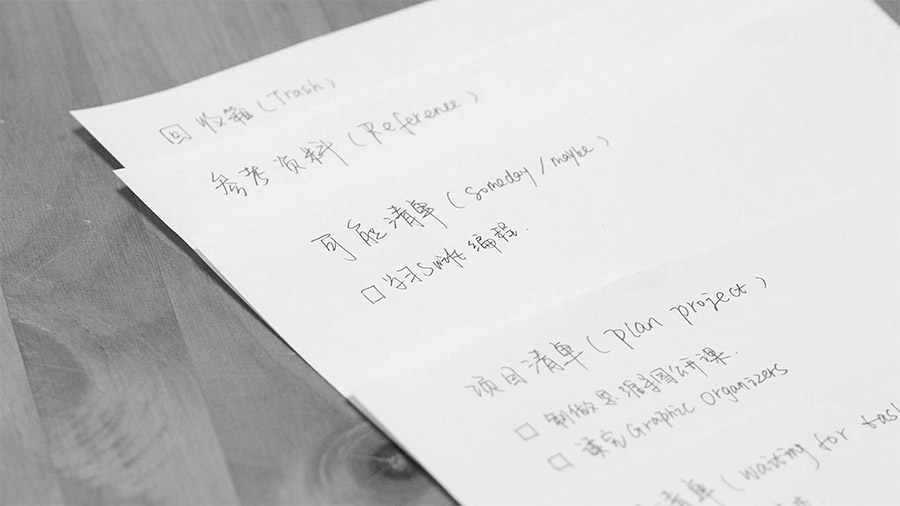 回收箱(Trash)
参考资料(Reference)
可能清单(Someday/maybe)
□ 学习Swift编程.
项目清单(plan project)
□ 制做思维导图公开课.
□ 读完Graphic Organizers
清单(waiting for task